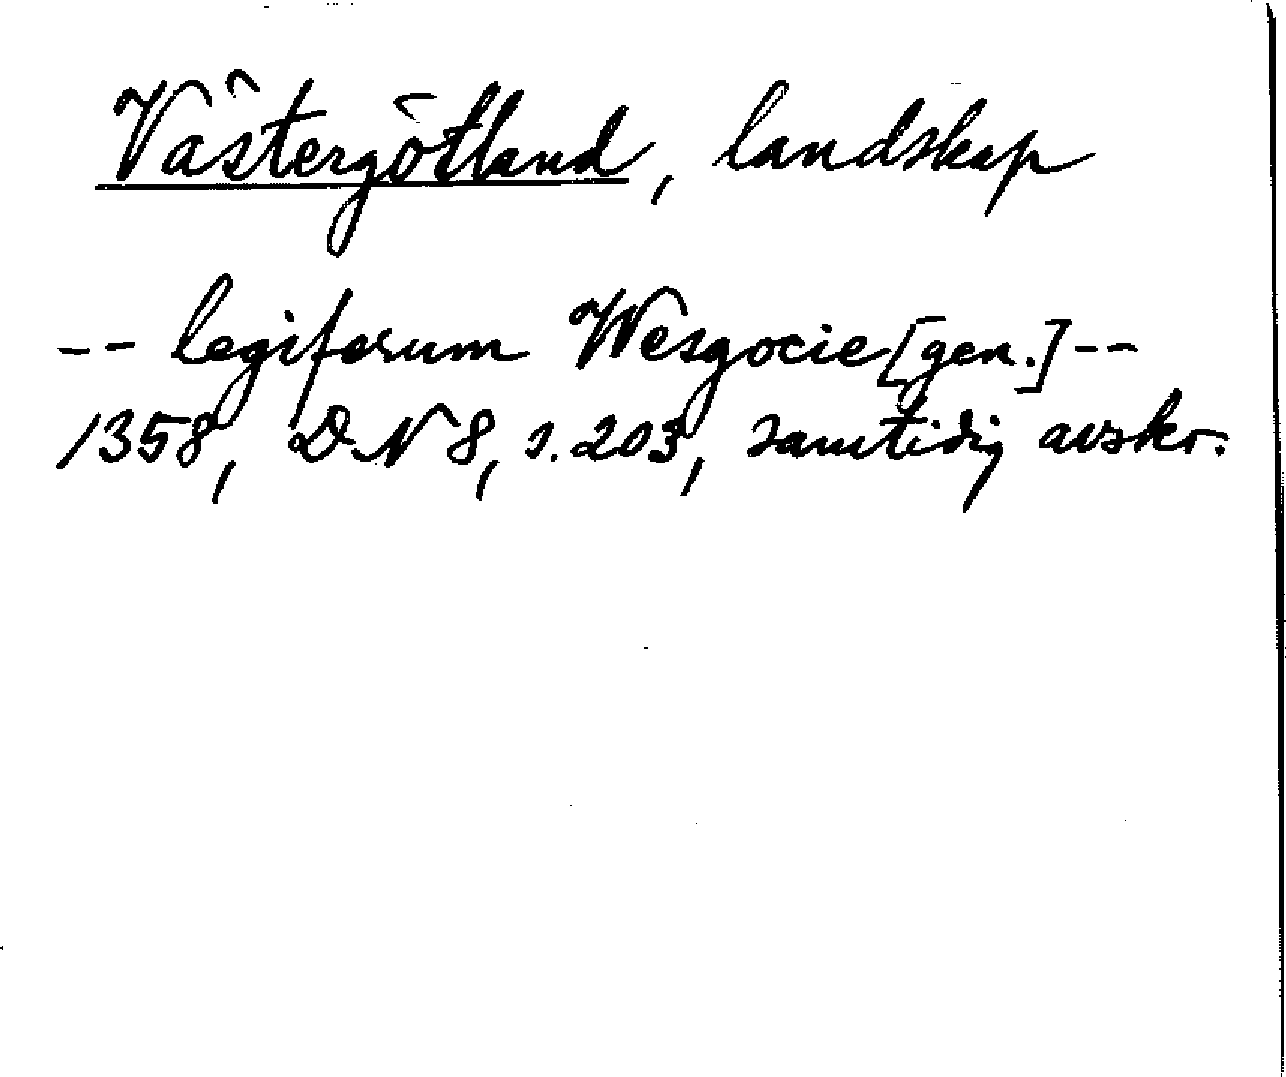 Västergötland, landskap
-- legiferum Wesgocie [gen.] --
1358, DN 8, s. 203, samtidig avskr.